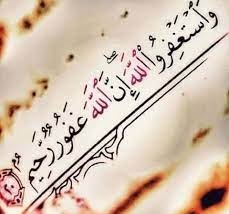 وَاسْتَغْفِرُوا اللَّهَ ۖ إِنَّ اللَّهَ غَفُورٌ رَّحِيمٌ